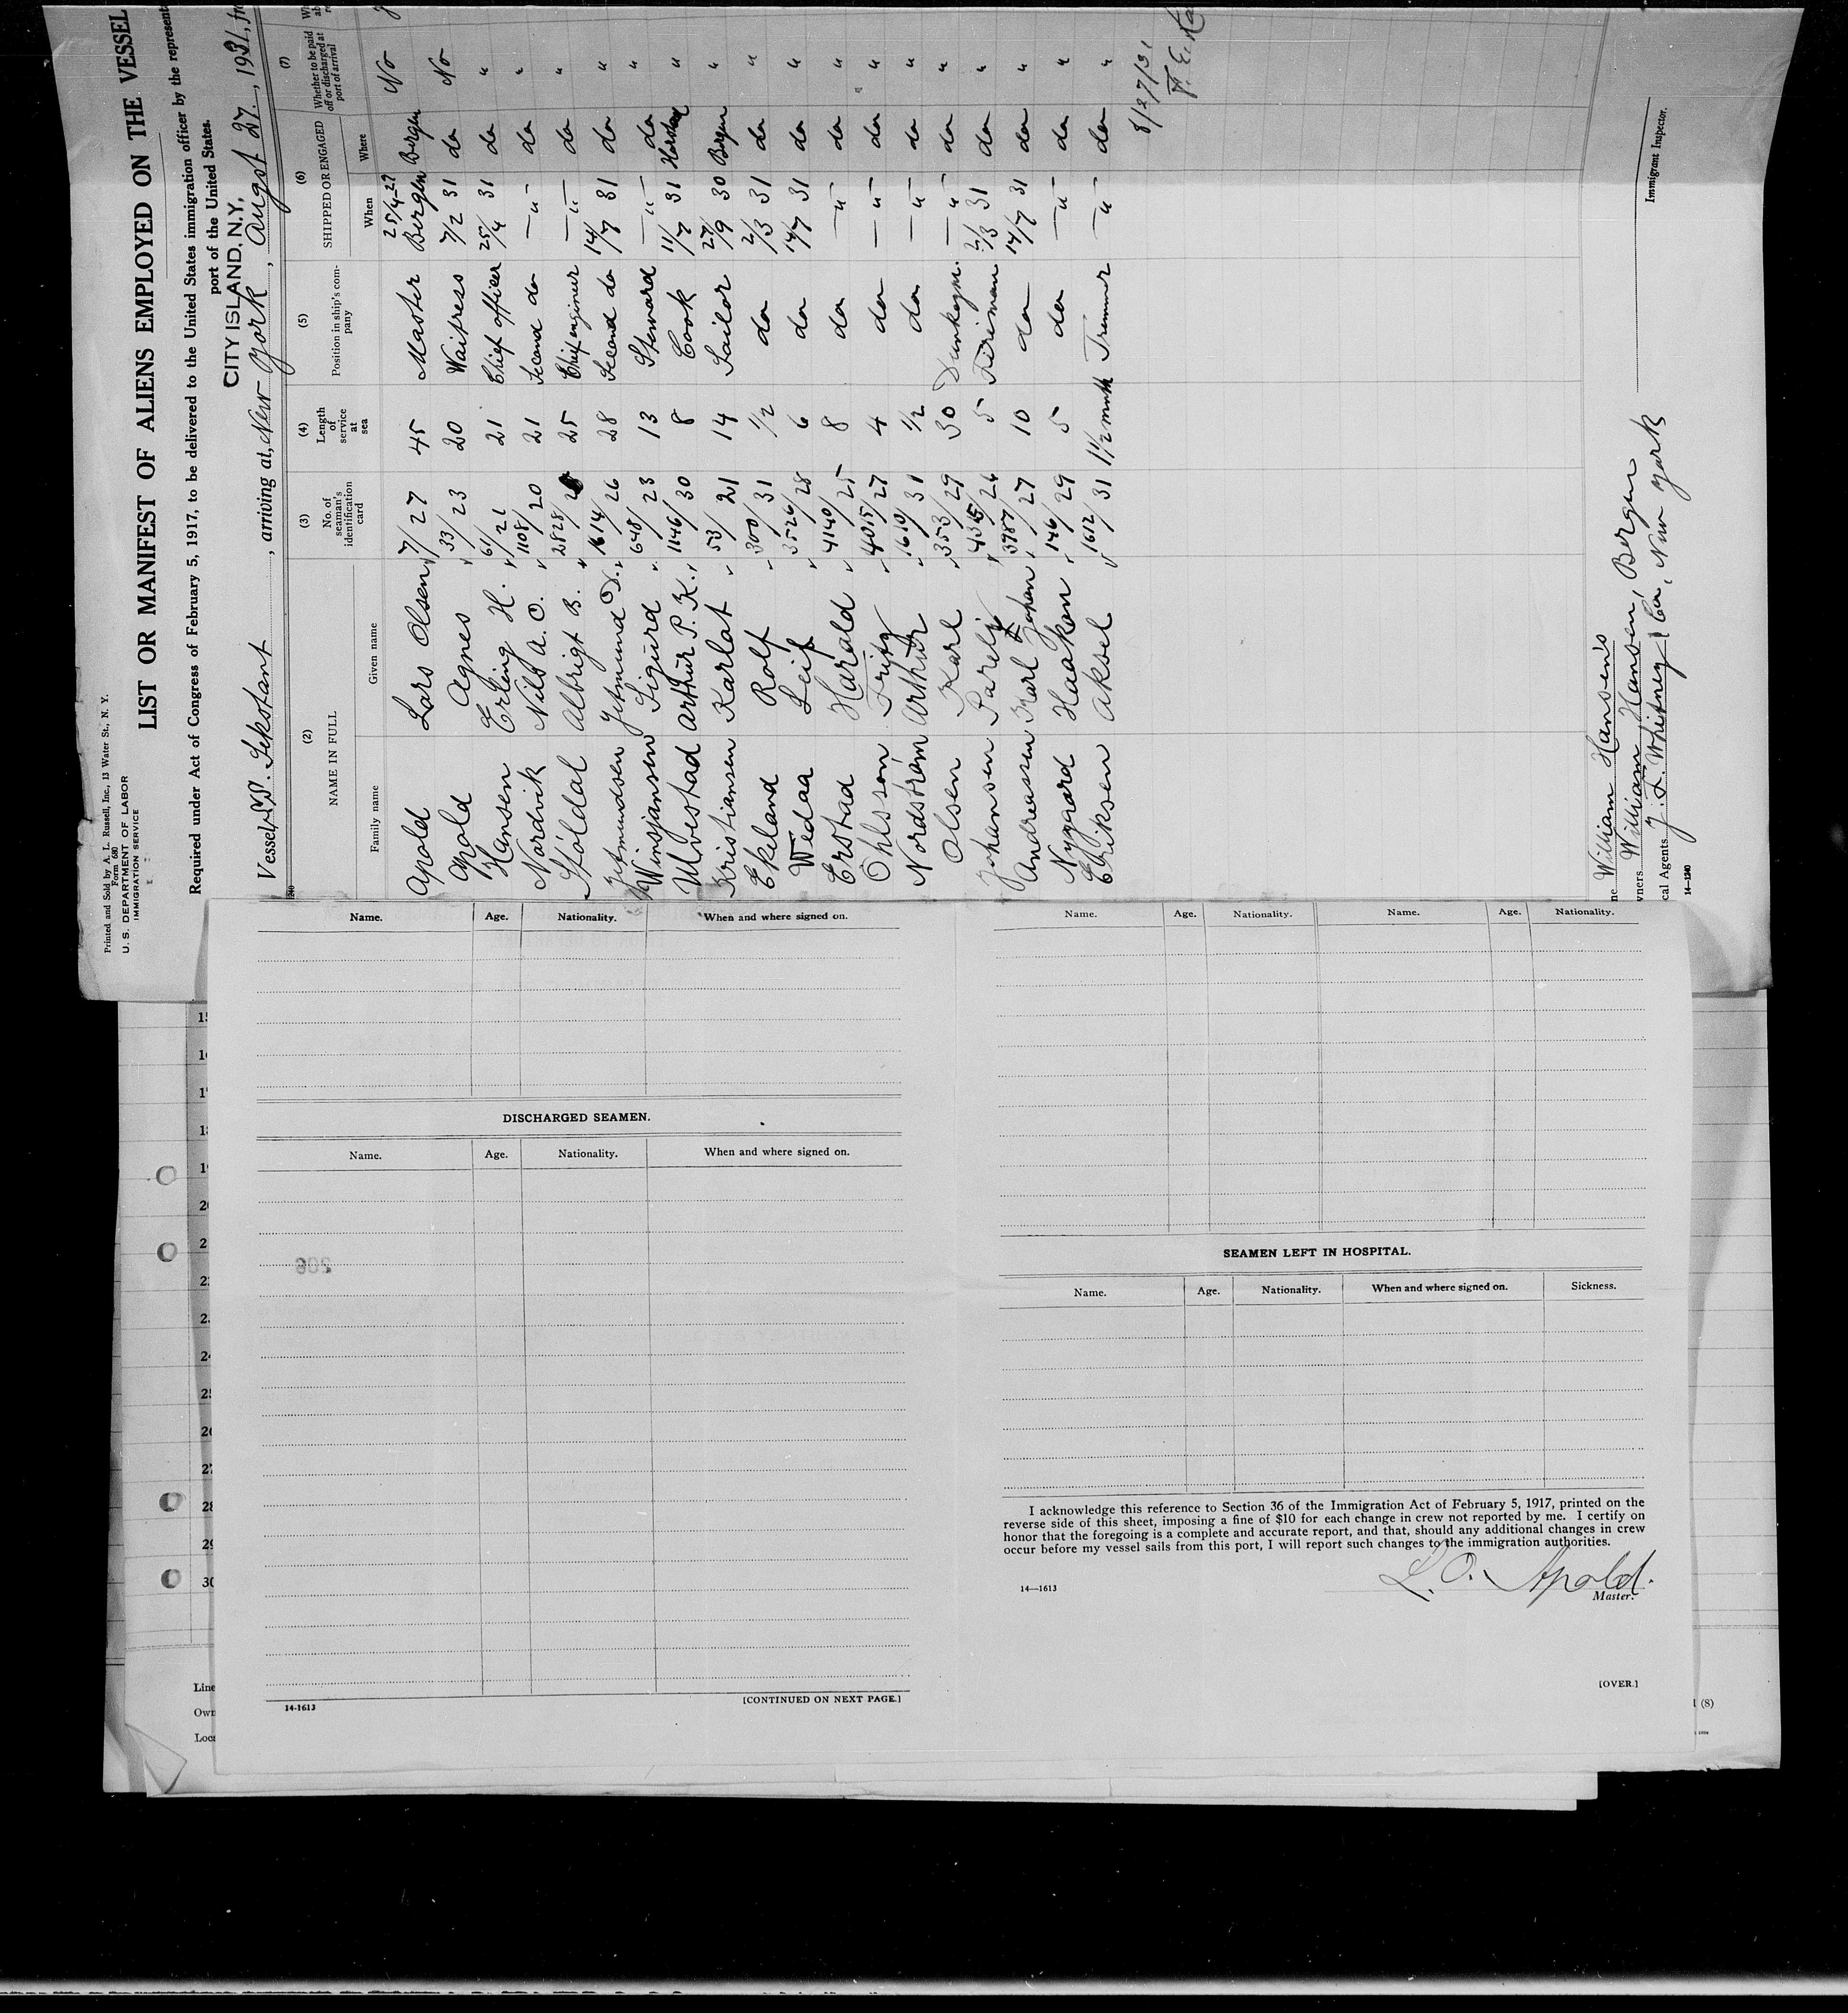 Printed and Sold by A. L. Russell, Inc., 13 Water St., N. Y.
Form 680
U. S. DEPARTMENT OF LABOR
IMMIGRATION SERVICE
LIST OR MANIFEST OF ALIENS EMPLOYED ON THE VESSEL
Required under Act of Congress of February 5, 1917, to be delivered to the United States immigration officer by the represent
port of the United States.
CITY ISLAND, N.Y,
Vessel arriving at, New York, Augst 27., 1931, fr
(2) (3) (4) (5) (6) (7)
NAME IN FULL No. of seaman's identification card Length of service at sea Position in ship's company SHIPPED OR ENGAGED Whether to be paid off or discharged at port of arrival
Family name Given name When Where
Apold Lars Olsen 7/27 45 Master 25/4-27 Bergen Bergen No
Apold Agnes 33/23 20 Waitress 7/2 31 do No
Hansen Erling H. 61/21 21 Chief officer 25/4 31 do "
Nordvik Nils A. O. 1108/20 21 Second do — " — do "
Stöldal Albrigt B. 2828/ 25 Chief engineer — " — do "
Jetmundsen Jetmund D. 1614/26 28 Second do 14/7 31 do "
Winsjansen Sigurd 648/23 13 Steward — " — do "
Ulvestad Arthur P. K. 1146/30 8 Cook 11/7 31 Harstad "
Kristiansen Karlat 53/21 14 Sailor 27/9 30 Bergen "
Ekeland Rolf 300/31 1/2 do 2/3 31 do "
Wedaa Leif 3526/28 6 do 14/7 31 do "
Erstad Harald 4140/25 8 do — " — do "
Ohlsson Fritz 4015/27 4 do — " — do "
Nordström Arthur 1610/31 1/2 do — " — do "
Olsen Karl 353/29 30 — " — do "
Johansen 5 Fireman 2/3 31 do "
Andreassen Karl Johan 3987/27 10 do 14/7 31 do "
Nygaard Haakon 146/29 5 do — " — do "
Eriksen Aksel 1612/31 1 1/2 month Trimmer — " — do "
8/27/31
William Hansen's
wners William Hansen, Bergen
cal Agents J. F. Whitney & Co, New York
14—1240
Immigrant Inspector.
Name. Age. Nationality. When and where signed on.
DISCHARGED SEAMEN.
Name. Age. Nationality. When and where signed on.
14-1613
[CONTINUED ON NEXT PAGE.]
Name. Age. Nationality. Name. Age. Nationality.
SEAMEN LEFT IN HOSPITAL.
Name. Age. Nationality. When and where signed on. Sickness.
I acknowledge this reference to Section 36 of the Immigration Act of February 5, 1917, printed on the
reverse side of this sheet, imposing a fine of $10 for each change in crew not reported by me. I certify on
honor that the foregoing is a complete and accurate report, and that, should any additional changes in crew
occur before my vessel sails from this port, I will report such changes to the immigration authorities.
L. O. Apold.
14—1613
Master.
[OVER.]
20
24
28
30
Line
Own
Loca
(8)